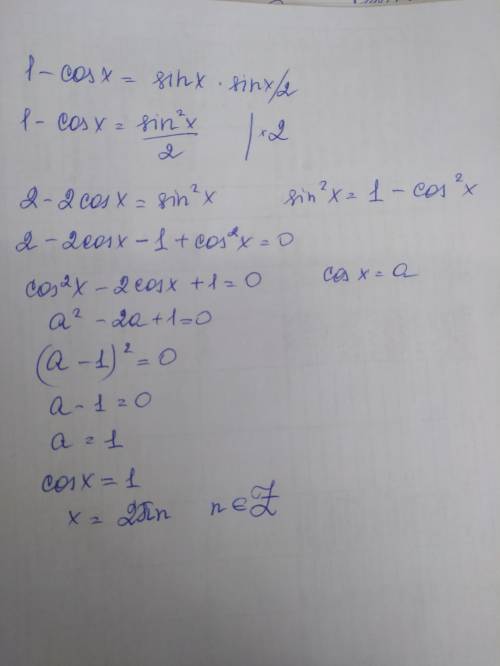 1 - cosx = sinx · sinx/2
1 - cosx = sin²x/2 | ·2
2 - 2cosx = sin²x sin²x = 1 - cos²x
2 - 2cosx - 1 + cos²x = 0
cos²x - 2cosx + 1 = 0 cos x = a
a² - 2a + 1 = 0
(a - 1)² = 0
a - 1 = 0
a = 1
cosx = 1
x = 2πn n ∈ Z